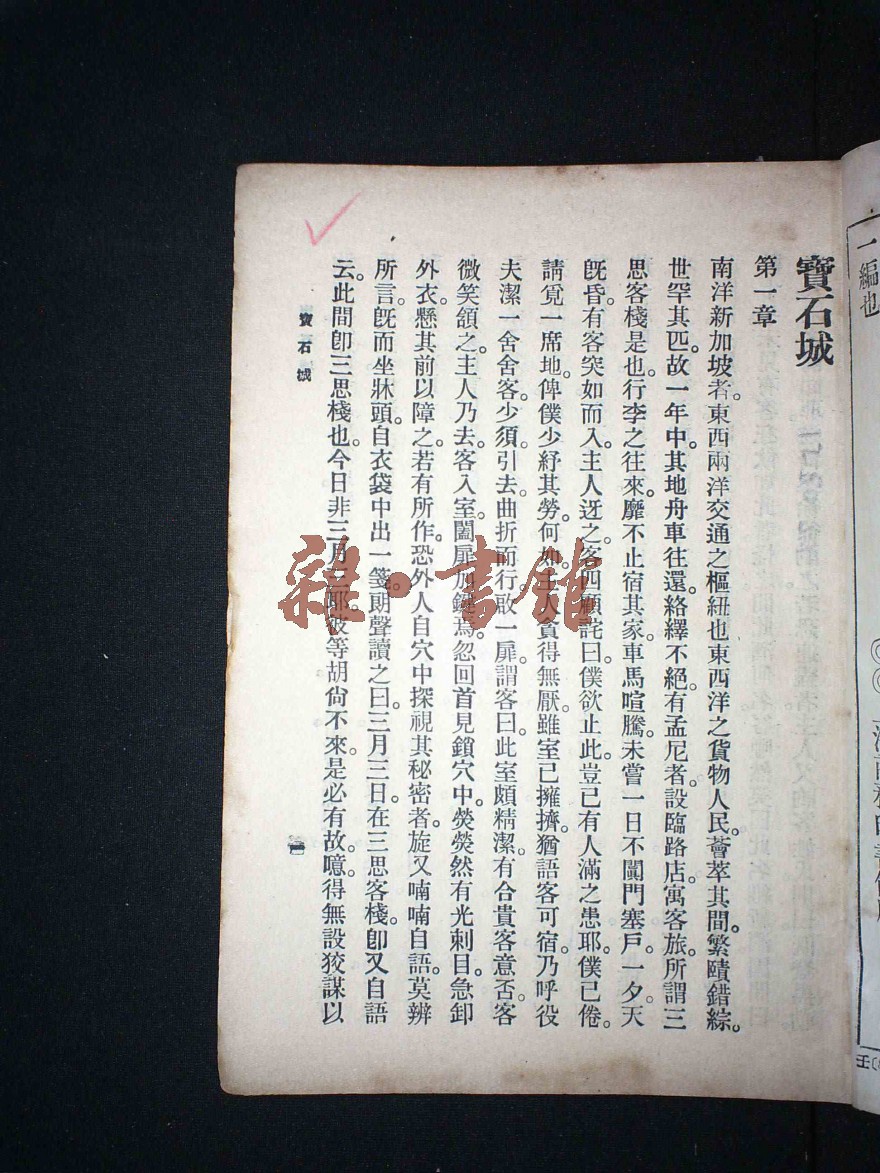 寶石城
第一章
南洋新加坡者。東西兩洋交通之樞紐也東西洋之貨物人民薈萃其間繁賾錯綜。
世罕其匹。故一年中其地舟車往還絡繹不絕。有孟尼者。設臨路店。寓客旅。所謂三
思客棧是也。行李之往來。靡不止宿其家。車馬喧騰。未嘗一日不闐門塞戶。一夕天
既昏。有客突如而入。主人迓之。客四顧詫曰。僕欲止此。豈已有人滿之患耶。僕已倦。
請覓一席地。俾僕少紓其勞。何如。主人貪得無厭。雖室已擁擠。猶語客可宿。乃呼役
夫潔一舍舍客。少須。引去。曲折而行。啟一扉。謂客曰。此室頗精潔。有合貴客意否。客
微笑頷之。主人乃去。客入室。闔扉加鍵焉。忽回首見鎖穴中。熒熒然有光刺目。急卸
外衣。懸其前以障之。若有所作。恐外人自穴中探視其秘密者。旋又喃喃自語。莫辨
所言。既而坐牀頭。自衣袋中出一箋。朗聲讀之曰。三月三日在三思客棧。卽又自語
云。此間卽三思棧也。今日非三月三耶。彼等胡尙不來。是必有故。噫。得無設狡謀以
寶石城
一編也
雜·書館